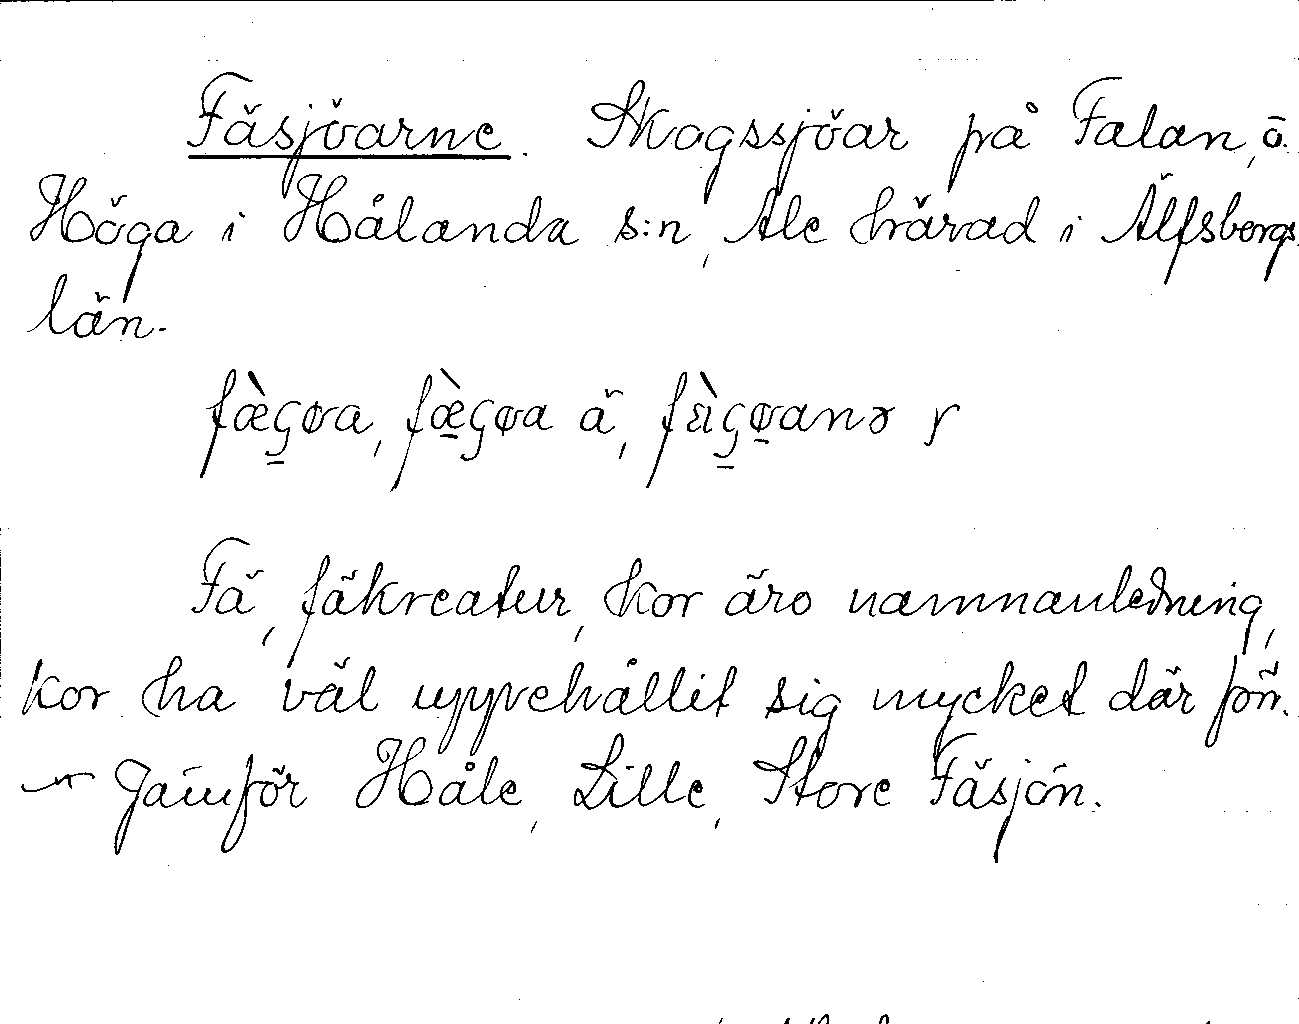 Fäsjöarne. Skogssjöar på Falan, ö.
Höga i Hålanda s:n, Ale härad i Älfsborgs
län.
fæ̀ςøa, fæ̀ςøa ä, fæ̀ςøanə r
Fä, fäkreatur, kor äro namnanledning,
kor ha väl uppehållit sig mycket där förr.
Jämför Håle, Lille, Store Fäsjön.